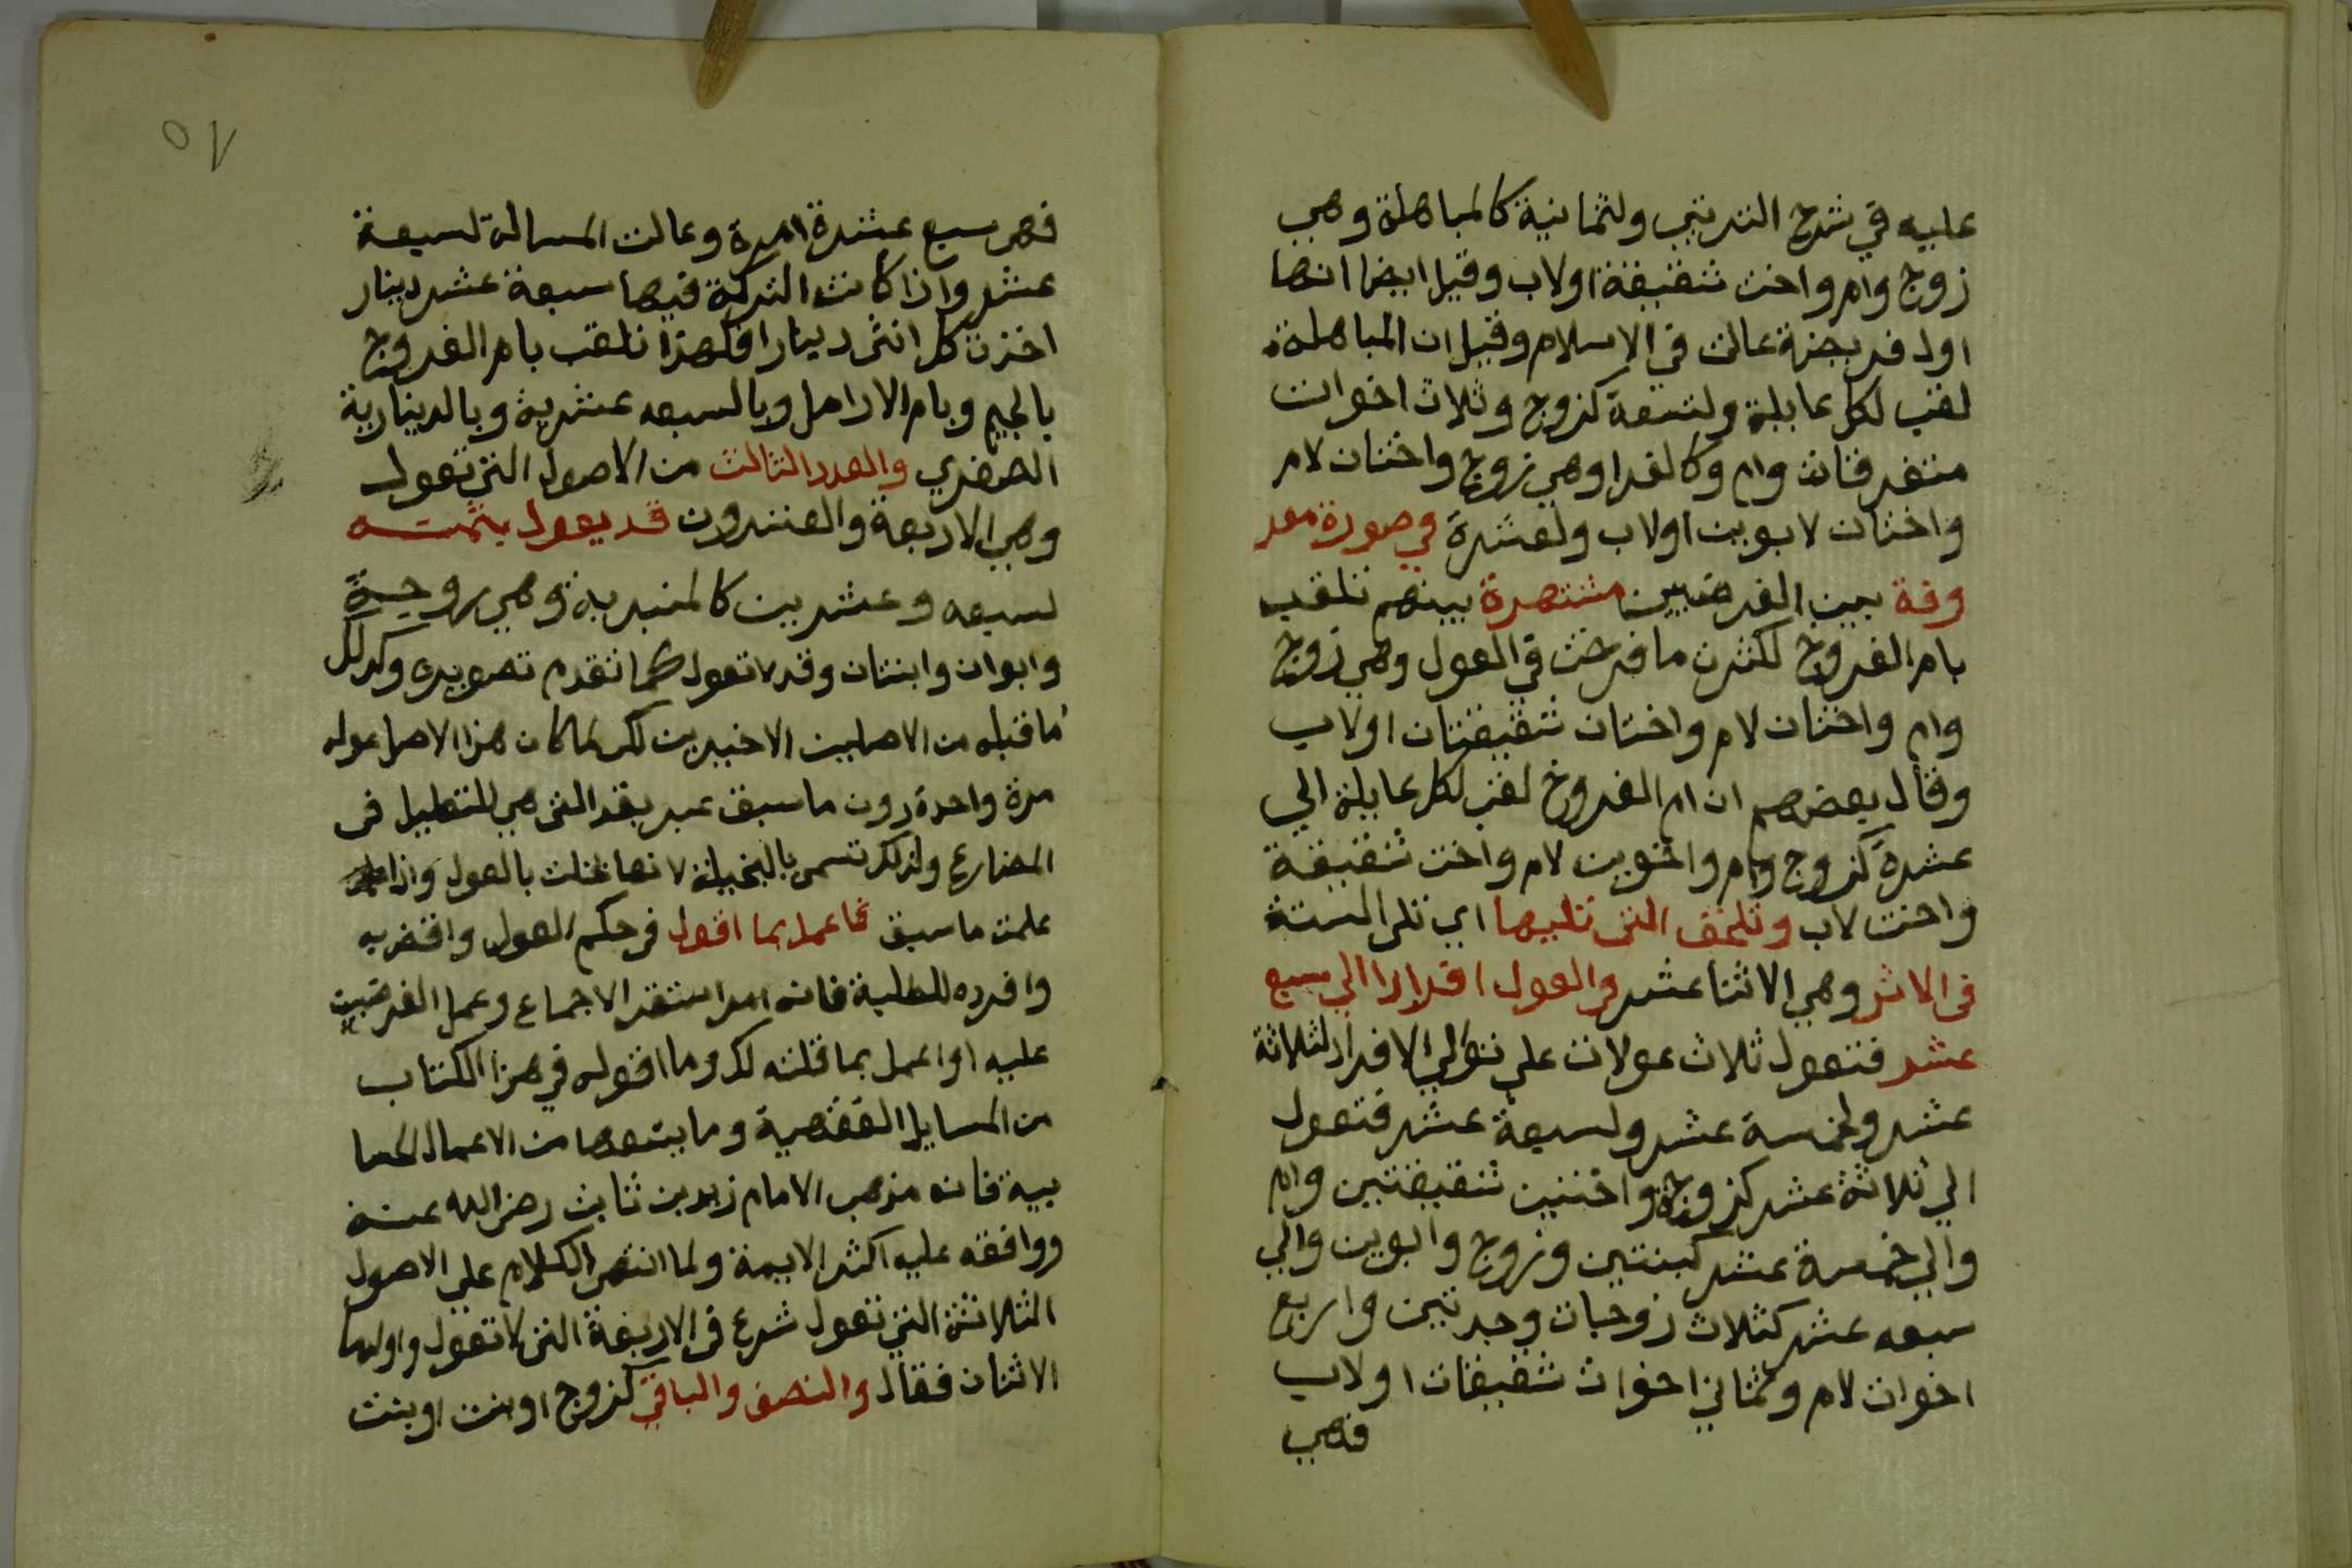 عليه في شرح الترتيب ولثمانية كالمباهلة وهي
زوج وام واخت شقيقة اولاب وقيل ايضا انها
اول فريضة عالت في الاسلام وقيل ان المباهلة
لقب لكل عايلة ولتسعة كزوج وثلاث اخوات
متفرقات وام وكالغرا وهي زوج واختان لام
واختان لابوين اولاب ولعشرة في صورة معر
وفة بين الفرضيين مشتهرة بينهم تلقب
بام الفروخ لكثرت ما فرخت في العول وهي زوج
وام واختان لام واختان شقيقتان اولاب
وقال بعضهم ان ام الفروخ لقب لكل عايلة الي
عشرة كزوج وام واخوين لام واخت شقيقة
واخت لاب وتلحق التي تليها اي تلي الستة
في الاثر وهي الاثنا عشر في العول افرادا الي سبع
عشر فتعول ثلاث عولات علي توالي الافراد لثلاثة
عشر ولخمسة عشر ولسبعة عشر فتعول
الي ثلاثة عشر كزوجة واختين شقيقتين وام
والي خمسة عشر كبنتين وزوج وابوين والي
سبعه عشر كثلاث زوجات وجدتين واربع
اخوات لام وثماني اخوات شقيقات اولاب
فهي
٥٧
فهن سبع عشرة امرة وعالت المسالة لسبعة
عشر واذا كانت التركة فيها سبعة عشر دينار
اخذت كل انثى دينارا فلهذا تلقب بام الفروج
بالجيم وبام الارامل وبالسبعه عشرية وبالدينارية
الصغري والعدد الثالث من الاصول التي تعول
وهي الاربعة والعشرون قد يعول بثمنه
لسبعه وعشرين كالمنبرية وهي زوجة
وابوان وابنتان وقد لا تعول كما تقدم تصويره وكذلك
ما قبله من الاصلين الاخيرين لكن لما كان هذا الاصل عوله
مرة واحدة دون ما سبق عبر بقد التي هي للتقليل في
المضارع ولذلك تسمى بالبخيلة لانها بخلت بالعول واذا
علمت ما سبق فاعمل بما اقول في حكم العول واقض به
وافرده للطلبة فانه امر استقر الاجماع وعمل الفرضيين
عليه او اعمل بما قلته لك وما اقوله في هذا الكتاب
من المسايل الفقهية وما يتبعها من الاعمال الحسا
بية فانه مذهب الامام زيد بن ثابت رضي الله عنه
ووافقه عليه اكثر الايمة ولما انتهى الكلام علي الاصول
الثلاثة التي تعول شرع في الاربعة التي لا تعول واولها
الاثنان فقال والنصف والباقي كزوج اوبنت اوبنت